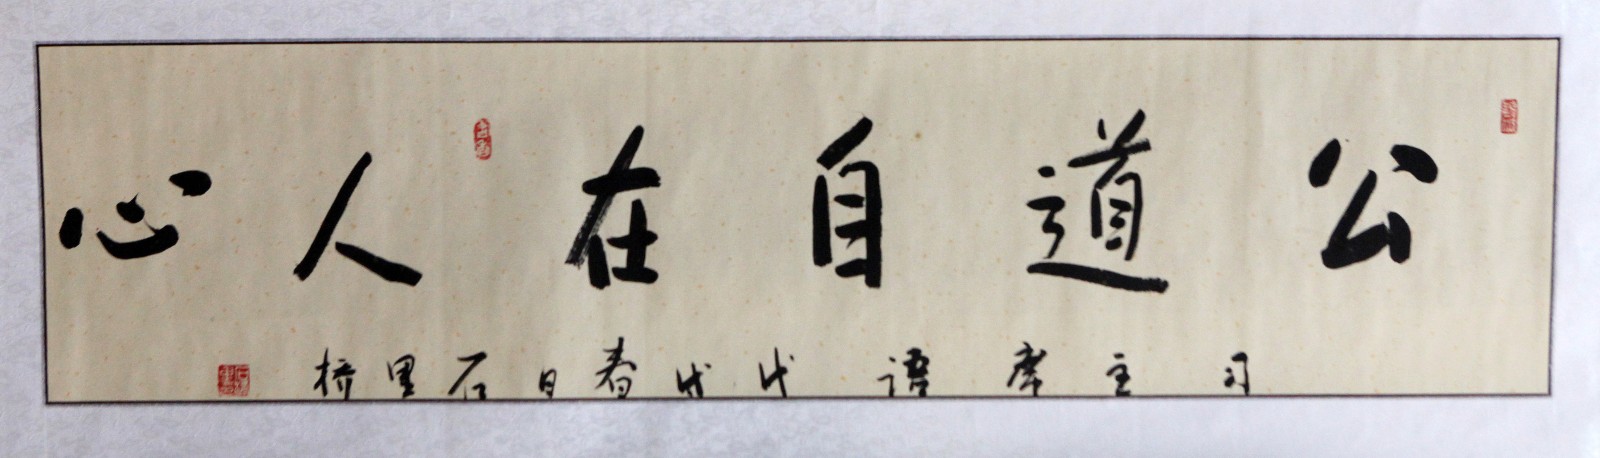 公道自在人心
习主席语 戊戌春日石里桥